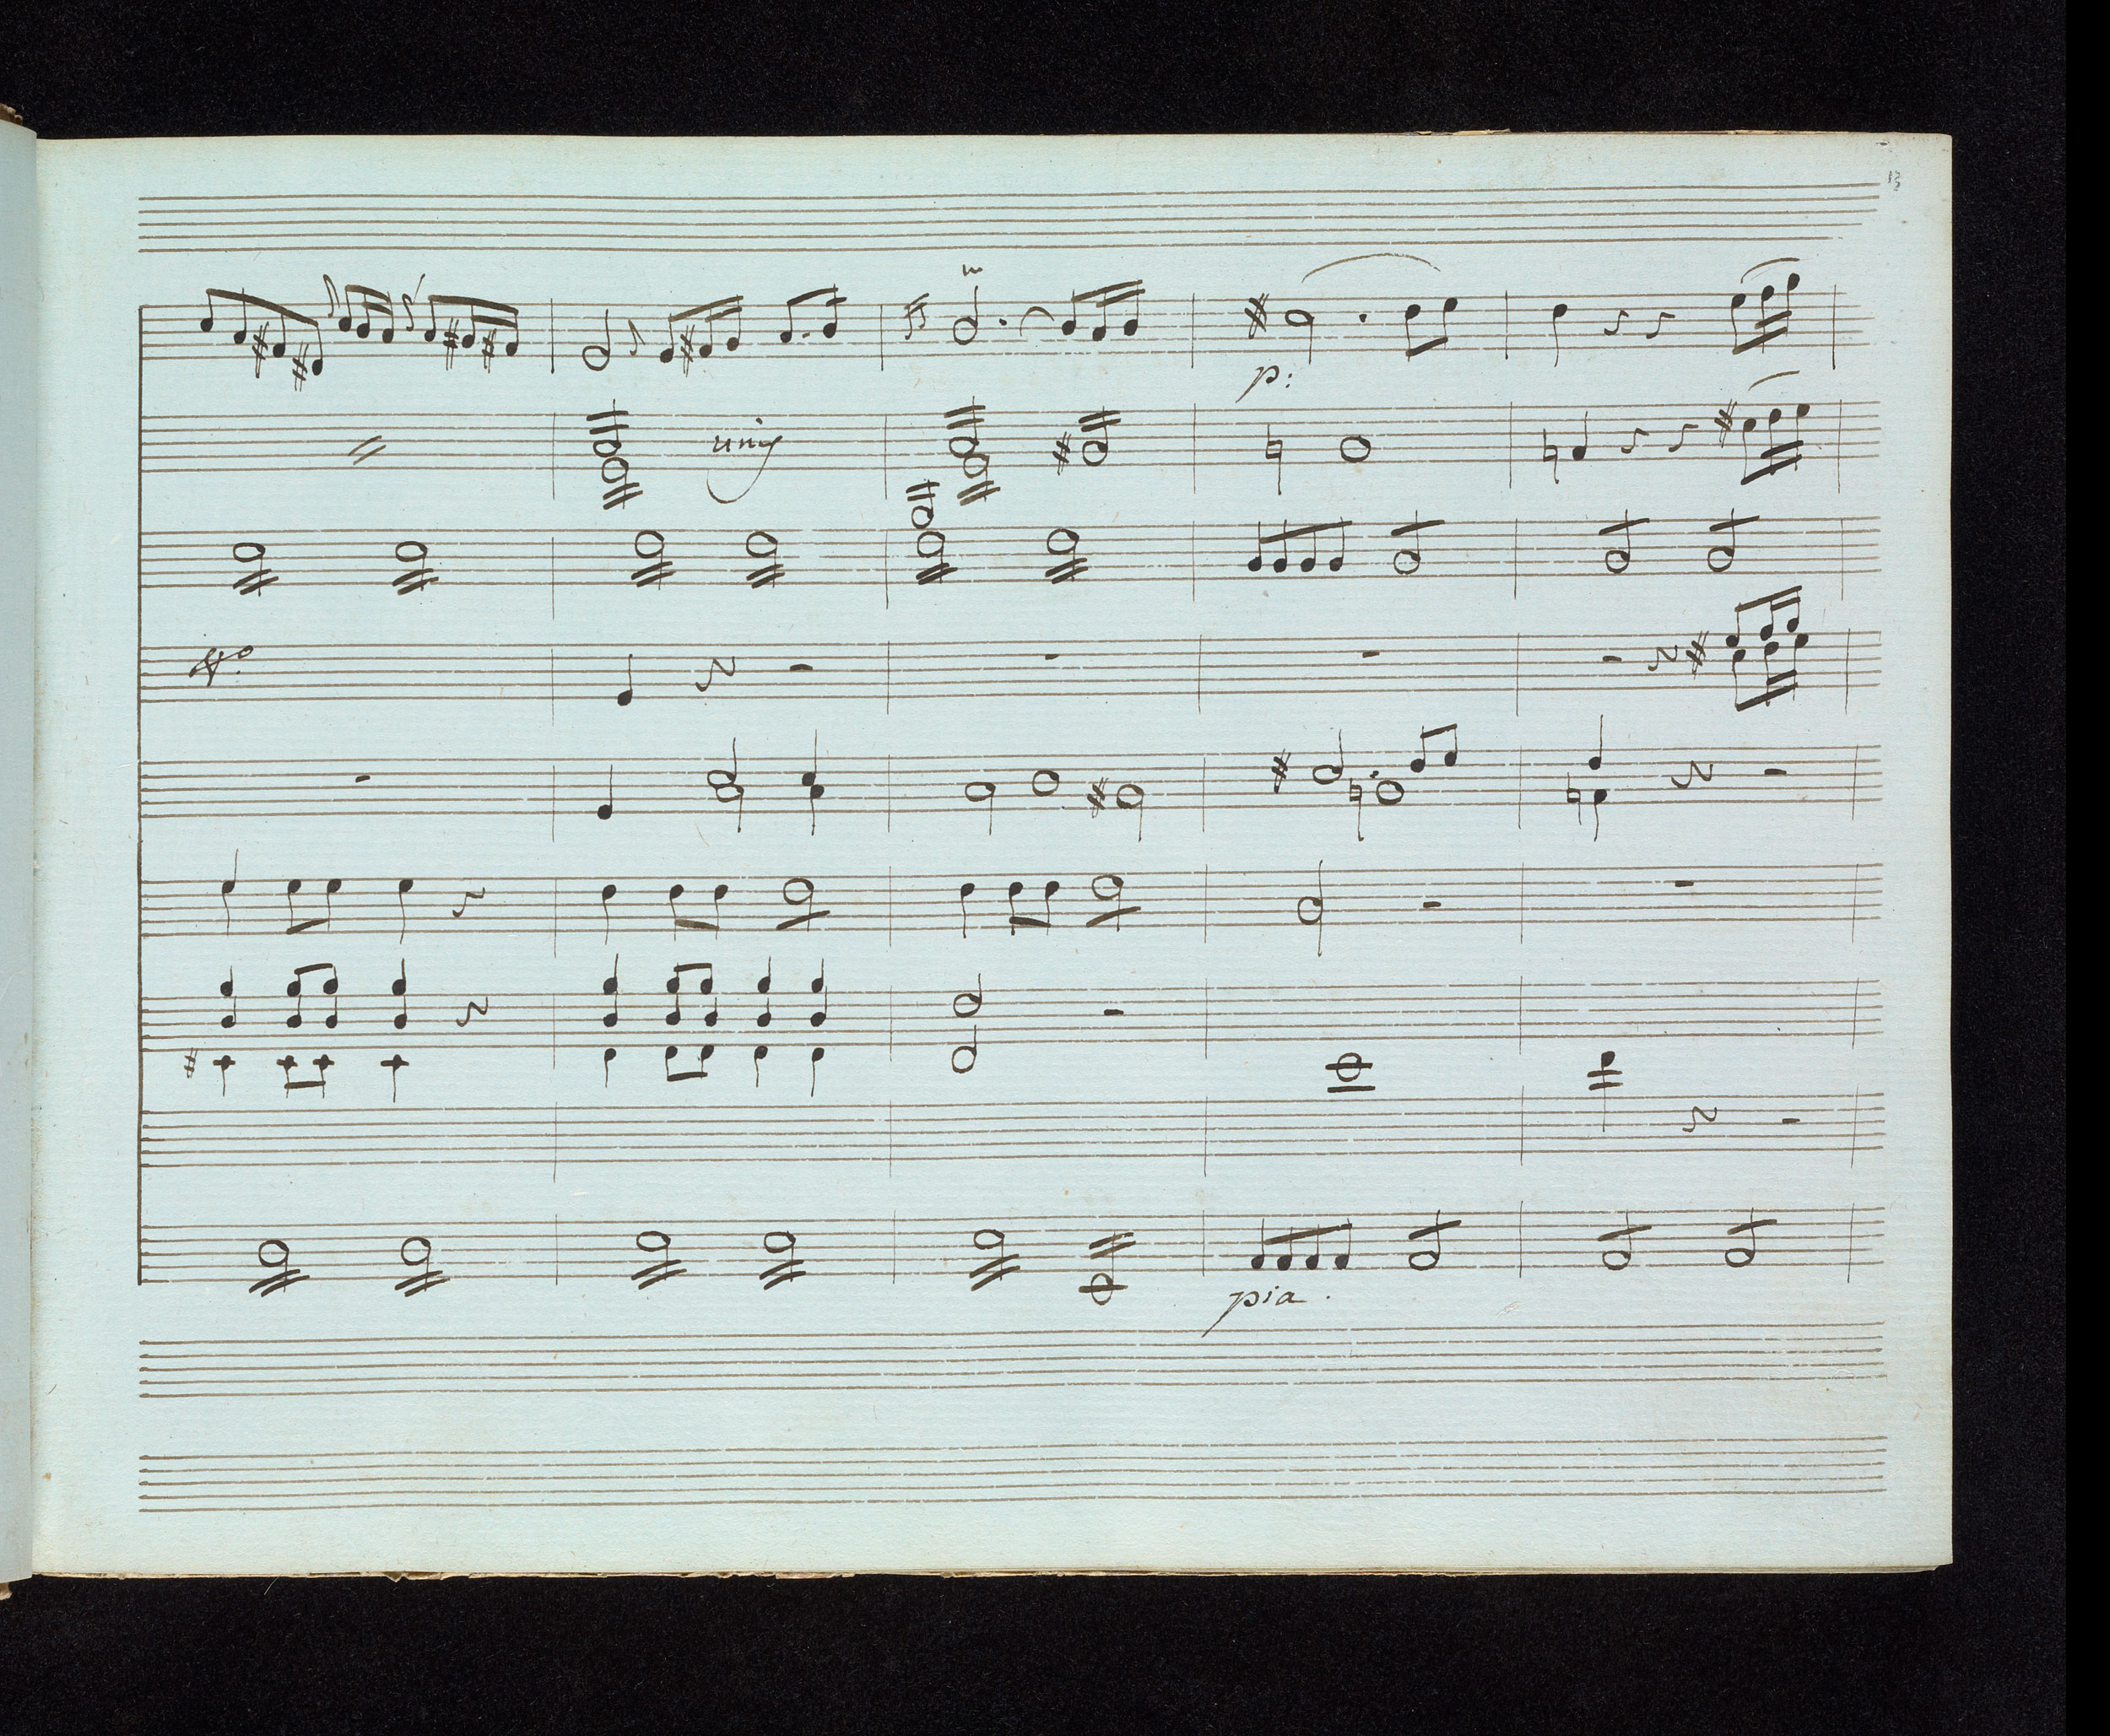 13
p:
unis
pia.